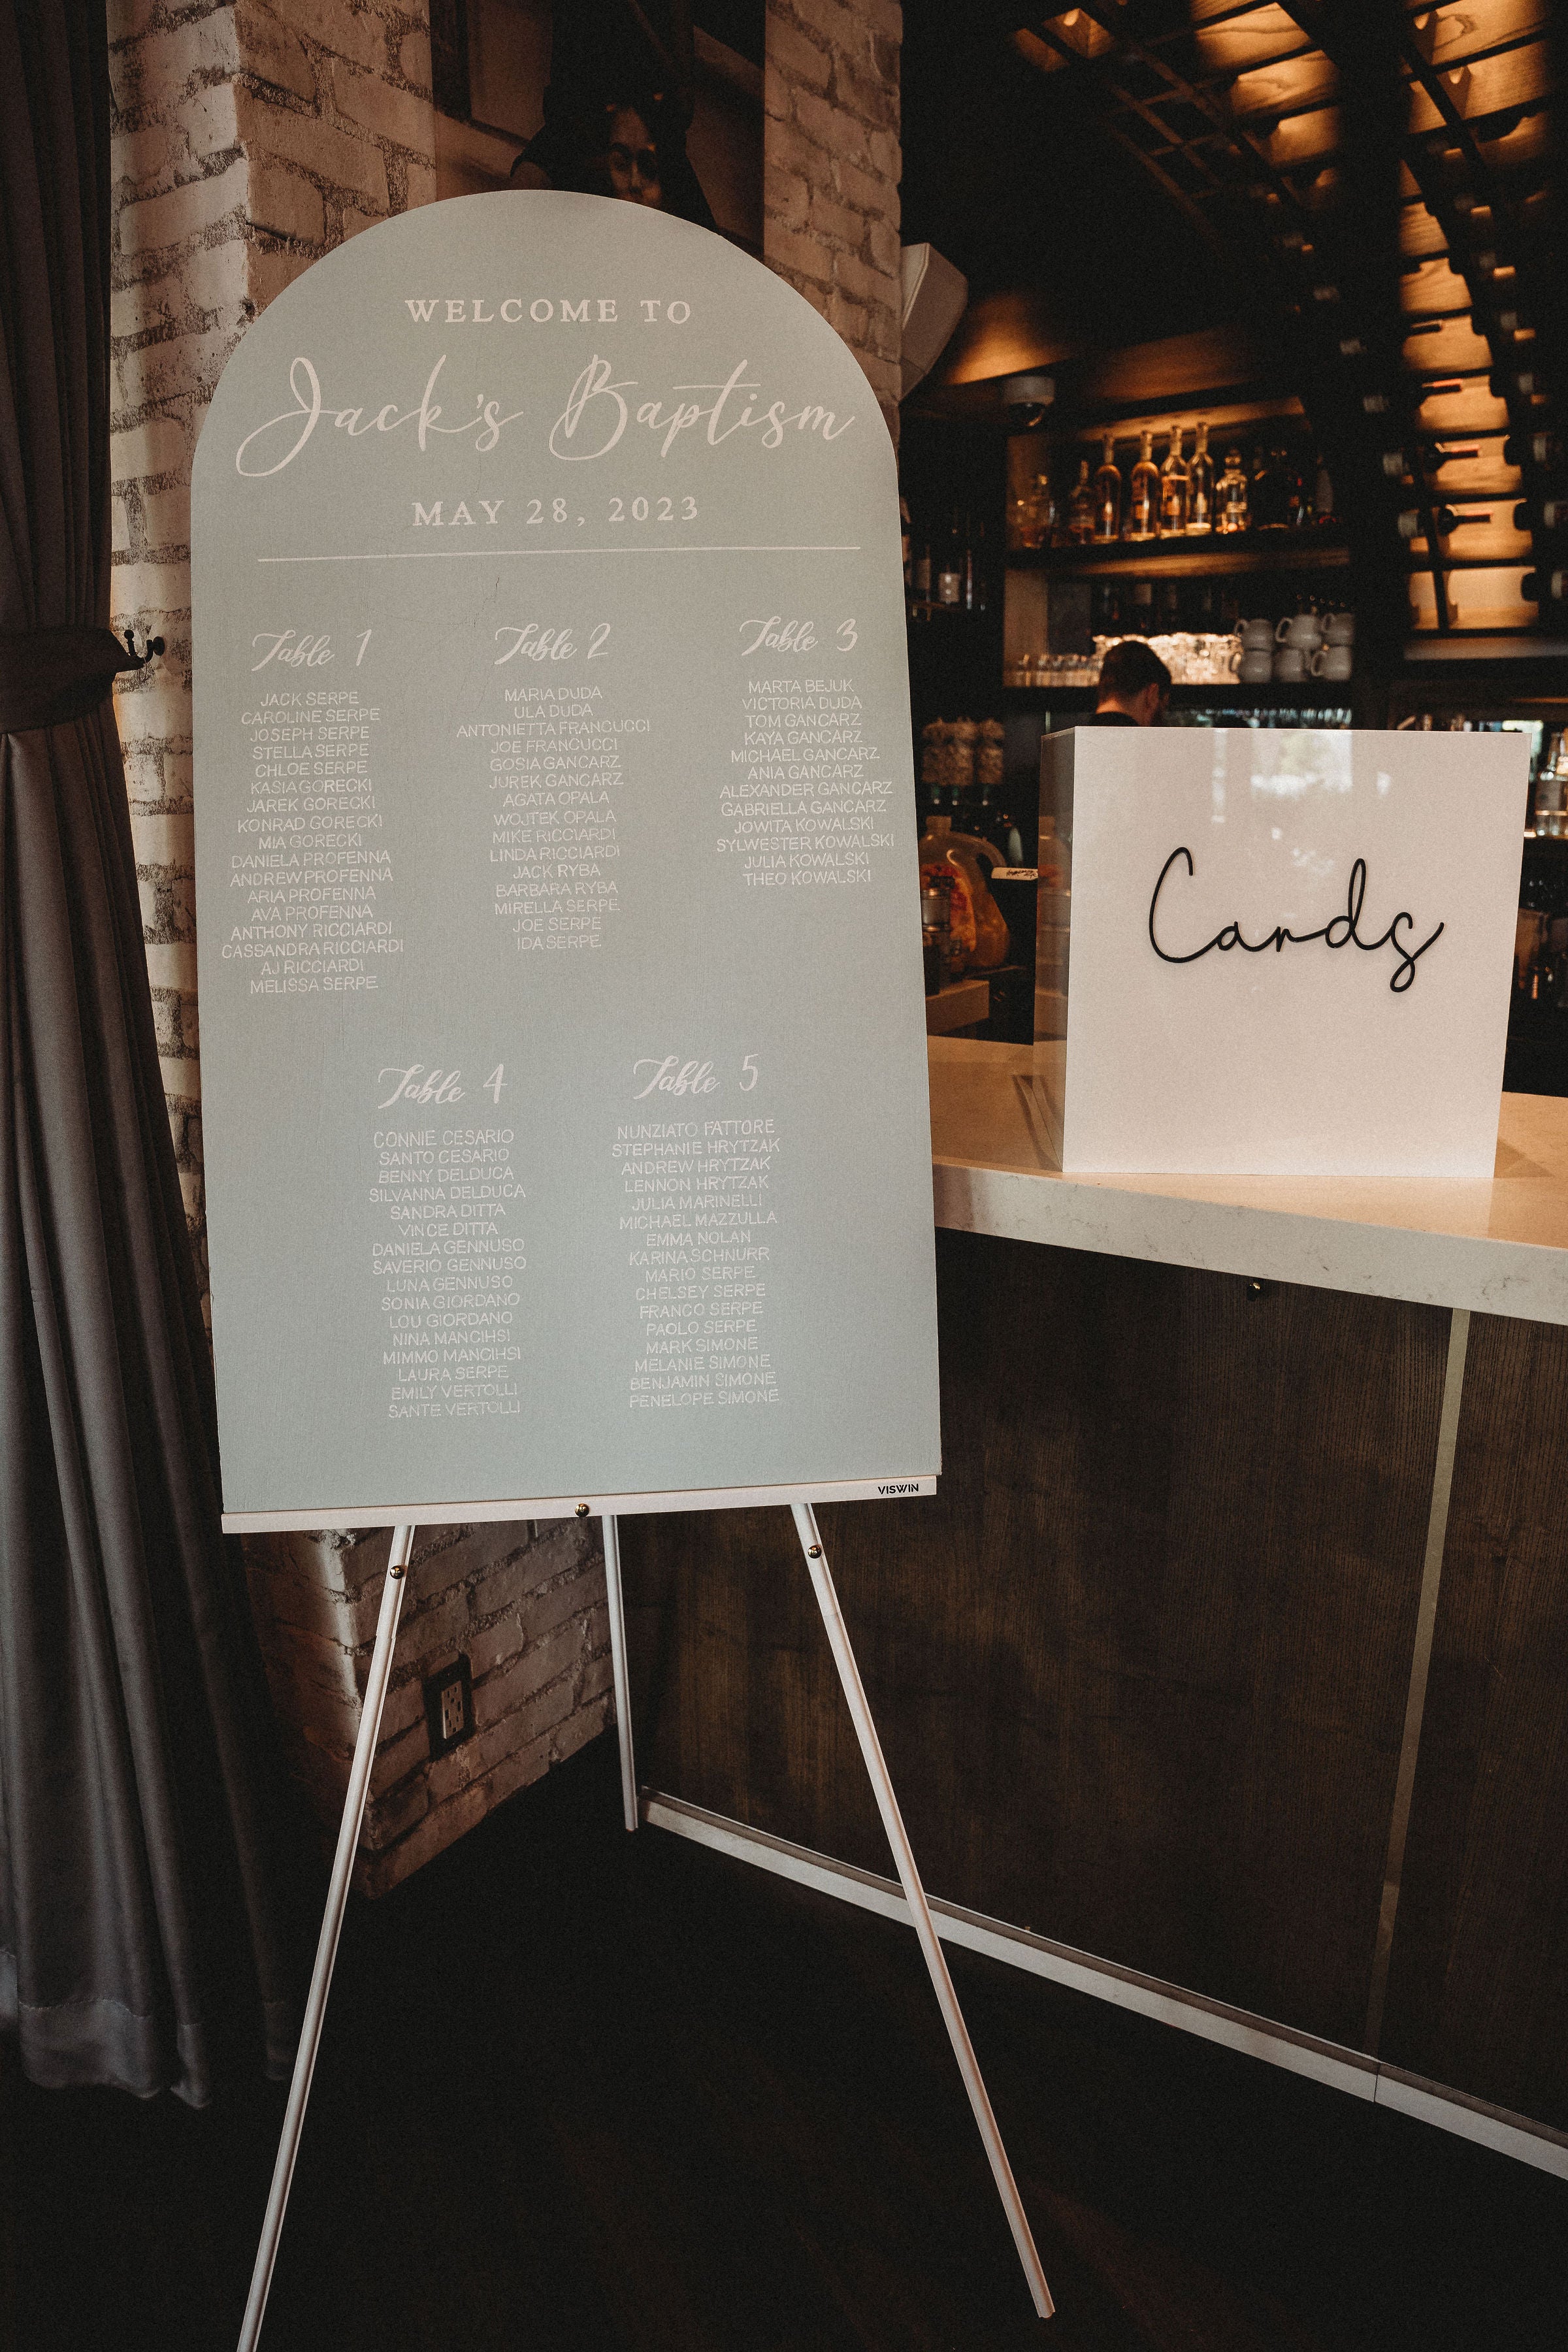 WELCOME TO
Jack's Baptism
MAY 28, 2023
Table 1
JACK SERPE
CAROLINE SERPE
JOSEPH SERPE
STELLA SERPE
CHLOE SERPE
KASIA GORECKI
JAREK GORECKI
KONRAD GORECKI
MIA GORECKI
DANIELA PROFENNA
ANDREW PROFENNA
ARIA PROFENNA
AVA PROFENNA
ANTHONY RICCIARDI
CASSANDRA RICCIARDI
AJ RICCIARDI
MELISSA SERPE
Table 2
MARIA DUDA
ULA DUDA
ANTONIETTA FRANCUCCI
JOE FRANCUCCI
GOSIA GANCARZ
JUREK GANCARZ
AGATA OPALA
WOJTEK OPALA
MIKE RICCIARDI
LINDA RICCIARDI
JACK RYBA
BARBARA RYBA
MIRELLA SERPE
JOE SERPE
IDA SERPE
Table 3
MARTA BEJUK
VICTORIA DUDA
TOM GANCARZ
KAYA GANCARZ
MICHAEL GANCARZ
ANIA GANCARZ
ALEXANDER GANCARZ
GABRIELLA GANCARZ
JOWITA KOWALSKI
SYLWESTER KOWALSKI
JULIA KOWALSKI
THEO KOWALSKI
Table 4
CONNIE CESARIO
SANTO CESARIO
BENNY DELDUCA
SILVANNA DELDUCA
SANDRA DITTA
VINCE DITTA
DANIELA GENNUSO
SAVERIO GENNUSO
LUNA GENNUSO
SONIA GIORDANO
LOU GIORDANO
NINA MANCIHSI
MIMMO MANCIHSI
LAURA SERPE
EMILY VERTOLLI
SANTE VERTOLLI
Table 5
NUNZIATO FATTORE
STEPHANIE HRYTZAK
ANDREW HRYTZAK
LENNON HRYTZAK
JULIA MARINELLI
MICHAEL MAZZULLA
EMMA NOLAN
KARINA SCHNURR
MARIO SERPE
CHELSEY SERPE
FRANCO SERPE
PAOLO SERPE
MARK SIMONE
MELANIE SIMONE
BENJAMIN SIMONE
PENELOPE SIMONE
VISWIN
Cards